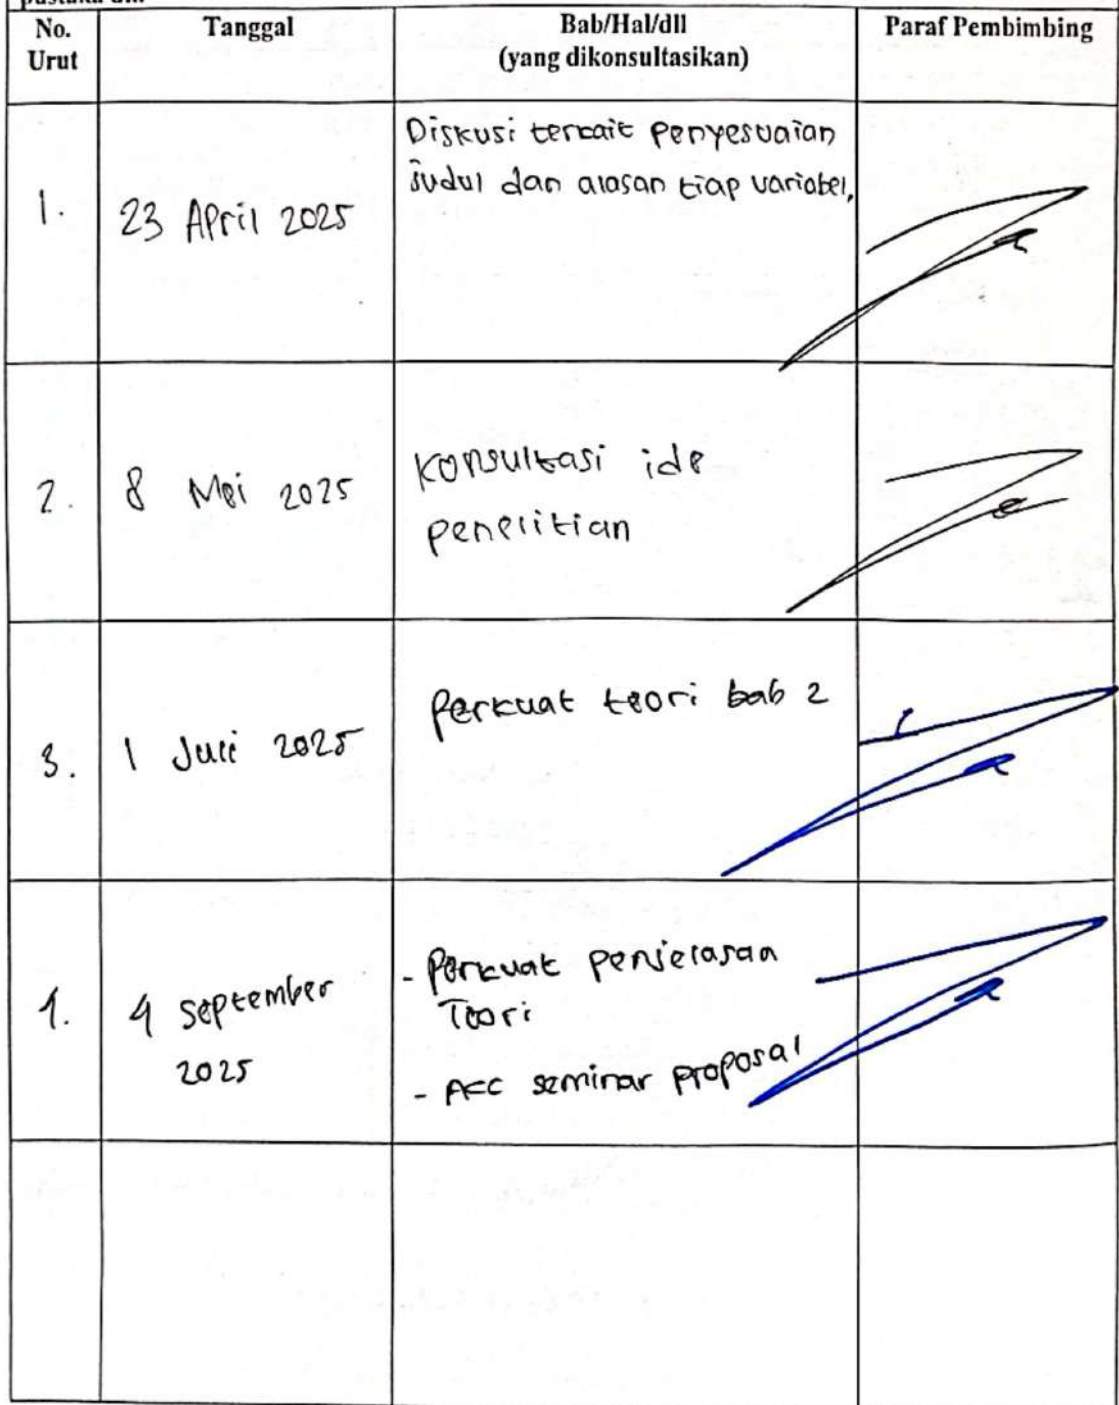 No.
Urut
Tanggal
Bab/Hal/dll
(yang dikonsultasikan)
Paraf Pembimbing
1.
23 April 2025
Diskusi terkait Penyesuaian
judul dan alasan tiap variabel.
2.
8 Mei 2025
Konsultasi ide
penelitian
3.
1 Juli 2025
Perkuat teori bab 2
4.
4 September
2025
- Perkuat penjelasan
Teori
- ACC seminar proposal